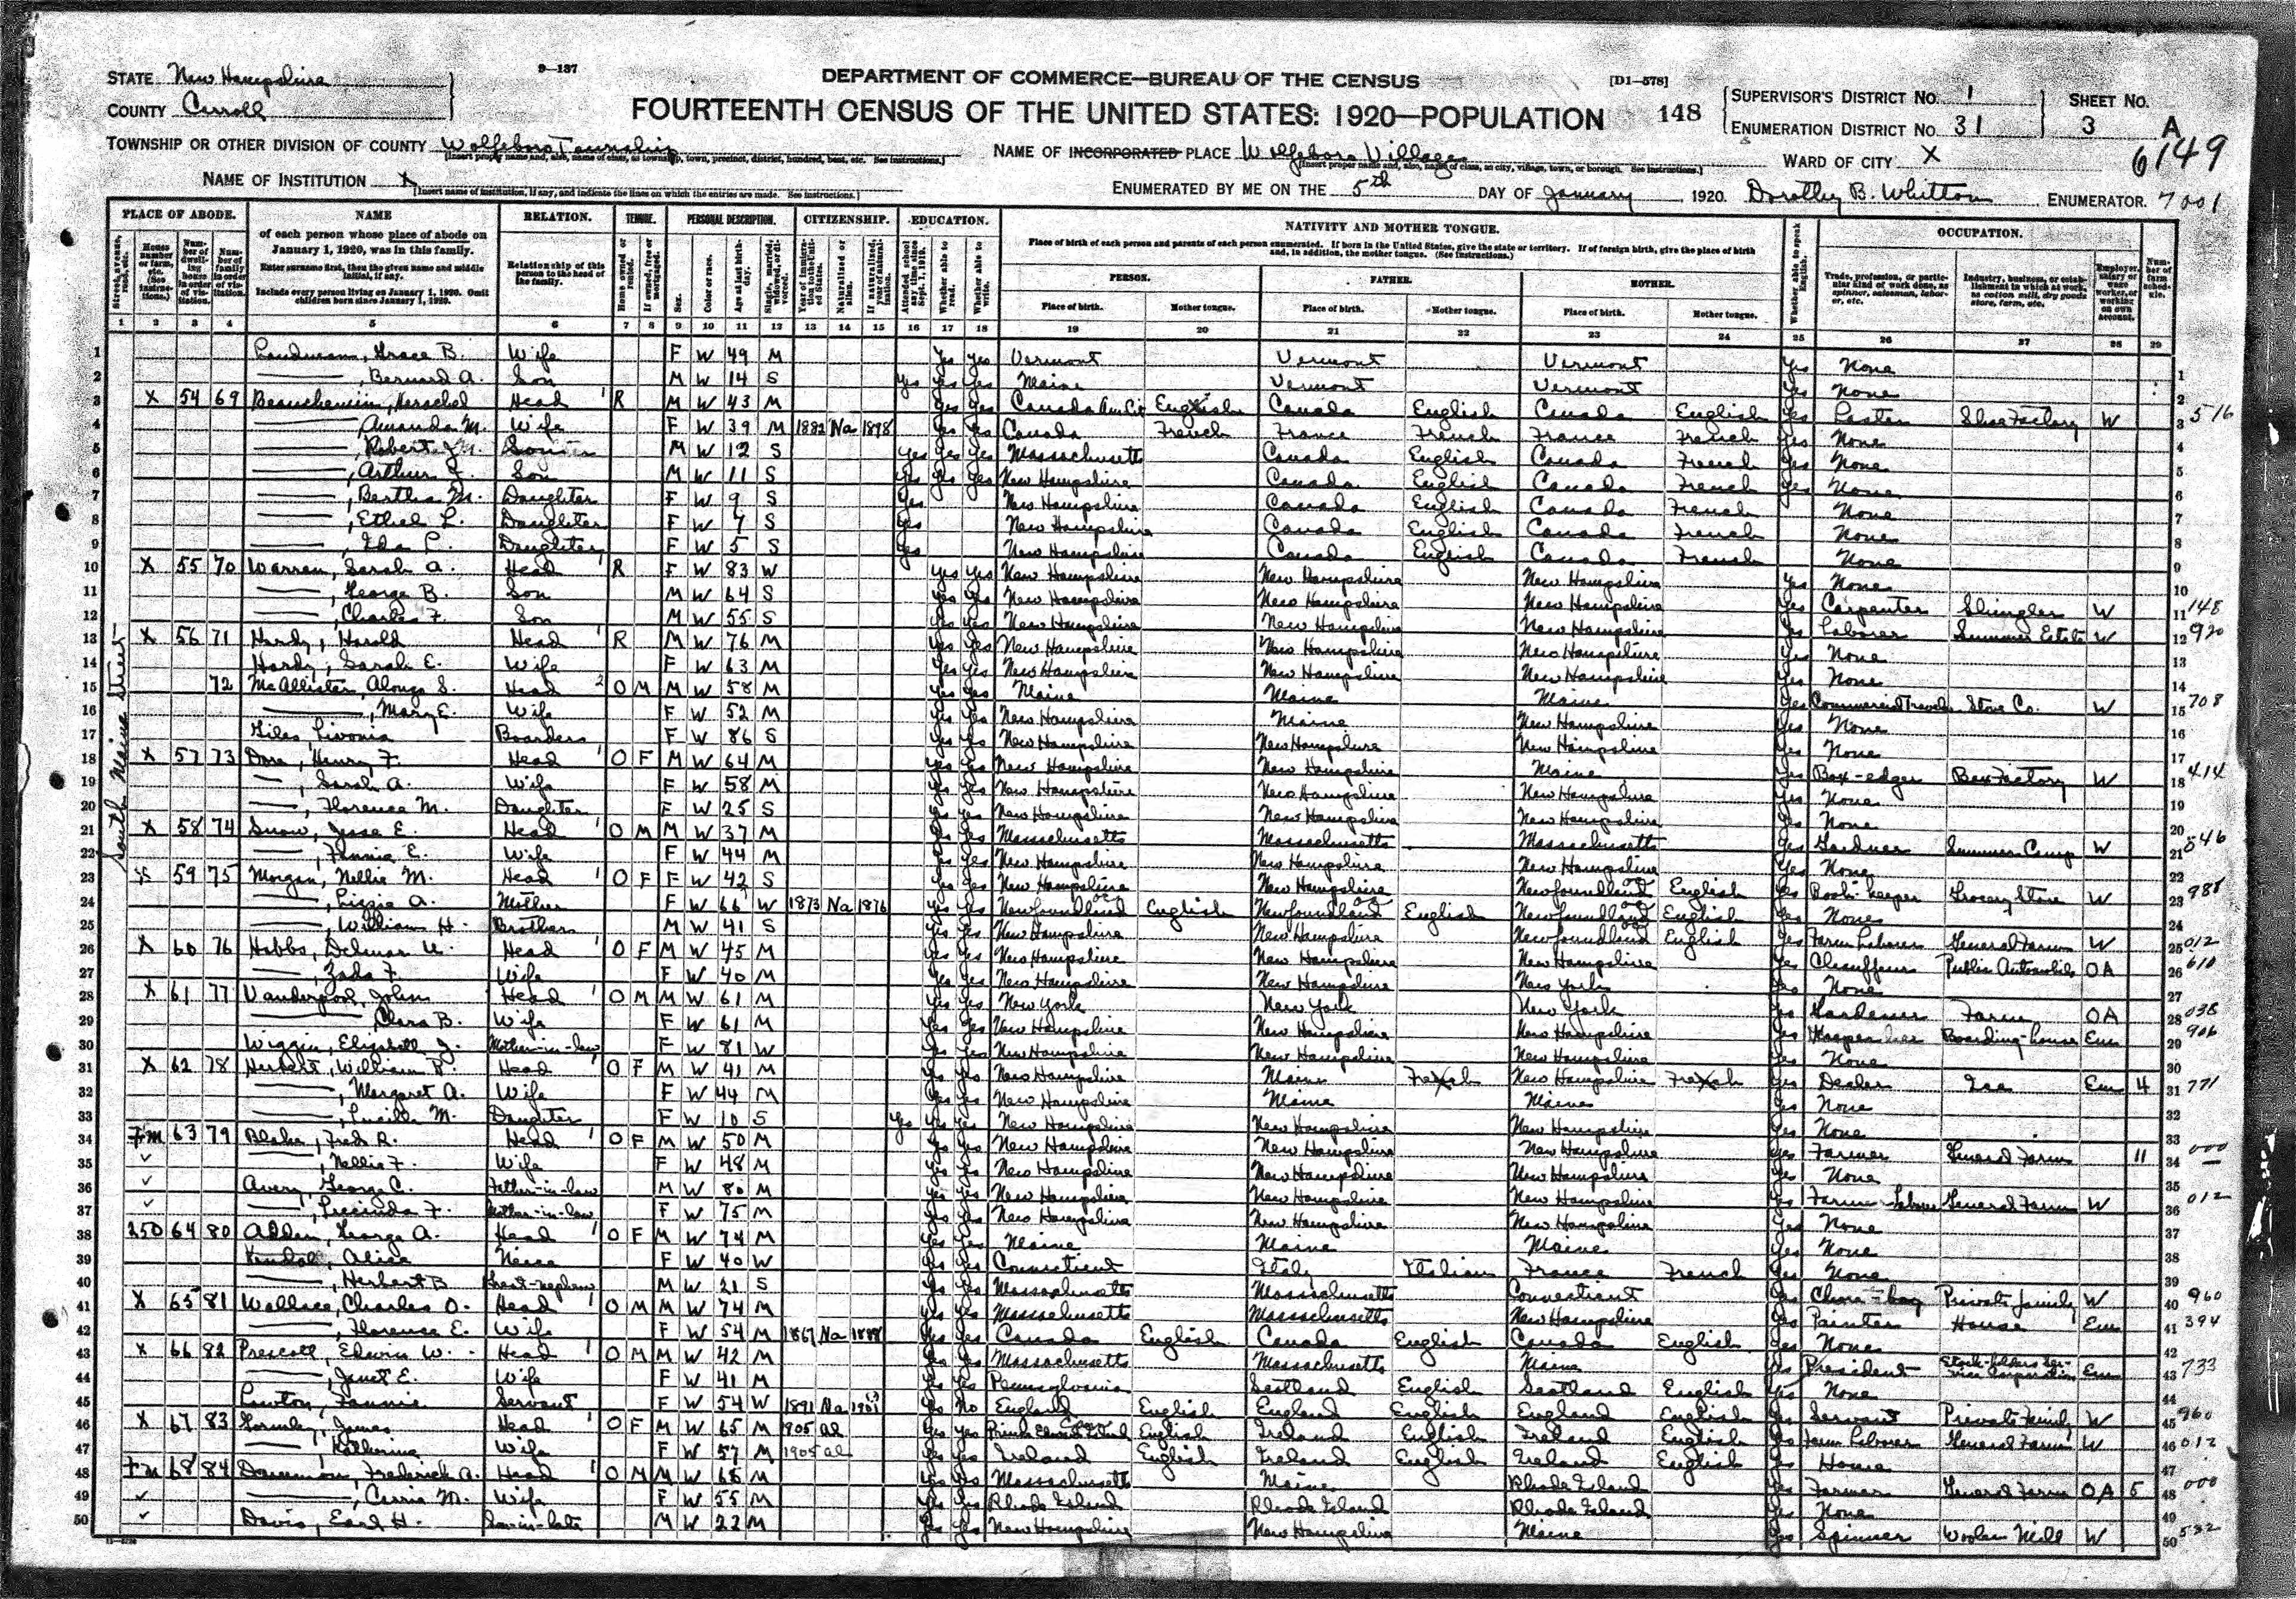 STATE New Hampshire
COUNTY Carroll
9—137
DEPARTMENT OF COMMERCE—BUREAU OF THE CENSUS
[D1—578]
FOURTEENTH CENSUS OF THE UNITED STATES: 1920—POPULATION
148
SUPERVISOR'S DISTRICT NO. 1
ENUMERATION DISTRICT NO. 31
SHEET NO. 3 A
6149
TOWNSHIP OR OTHER DIVISION OF COUNTY Wolfeboro Township
[Insert proper name and, also, name of class, as township, town, precinct, district, hundred, beat, etc. See instructions.]
NAME OF INCORPORATED PLACE Wolfeboro Village
[Insert proper name and, also, name of class, as city, village, town, or borough. See instructions.]
WARD OF CITY X
NAME OF INSTITUTION X
[Insert name of institution, if any, and indicate the lines on which the entries are made. See instructions.]
ENUMERATED BY ME ON THE 5th DAY OF January, 1920. Dorothy B. Whitton ENUMERATOR. 7001
PLACE OF ABODE. NAME RELATION. TENURE. PERSONAL DESCRIPTION. CITIZENSHIP. EDUCATION. NATIVITY AND MOTHER TONGUE. OCCUPATION.
of each person whose place of abode on January 1, 1920, was in this family.
Enter surname first, then the given name and middle initial, if any.
Include every person living on January 1, 1920. Omit children born since January 1, 1920.
Relationship of this person to the head of the family.
Place of birth of each person and parents of each person enumerated. If born in the United States, give the state or territory. If of foreign birth, give the place of birth and, in addition, the mother tongue. (See instructions.)
PERSON. FATHER. MOTHER.
Place of birth. Mother tongue. Place of birth. Mother tongue. Place of birth. Mother tongue.
1 2 3 4 5 6 7 8 9 10 11 12 13 14 15 16 17 18 19 20 21 22 23 24 25 26 27 28 29
South Maine Street
1 Grace B. Wife F W 49 M Yes Yes Vermont Vermont Vermont Yes None
2 , Bernard A. Son M W 14 S Yes Yes Yes Maine Vermont Vermont Yes None
3 X 54 69 Beauchemin, Herschel Head R M W 43 M Yes Yes Canada Am Cit English Canada English Canada English Yes Laster Shoe Factory W 516
4 , Amanda M. Wife F W 39 M 1882 Na 1898 Yes Yes Canada French France French France French Yes None
5 , Robert M. Son M W 12 S Yes Yes Yes Massachusetts Canada English Canada French Yes None
6 , Arthur Son M W 11 S Yes Yes Yes New Hampshire Canada English Canada French Yes None
7 , Bertha M. Daughter F W 9 S Yes New Hampshire Canada English Canada French None
8 , Ethel L. Daughter F W 7 S Yes New Hampshire Canada English Canada French None
9 , Ida L. Daughter F W 5 S Yes New Hampshire Canada English Canada French None
10 X 55 70 Warren, Sarah A. Head R F W 83 W Yes Yes New Hampshire New Hampshire New Hampshire Yes None
11 , George B. Son M W 64 S Yes Yes New Hampshire New Hampshire New Hampshire Yes Carpenter Shingler W 148
12 , Charles F. Son M W 55 S Yes Yes New Hampshire New Hampshire New Hampshire Yes Laborer Summer Estate W 920
13 X 56 71 Hardy, Harold Head R M W 76 M Yes Yes New Hampshire New Hampshire New Hampshire Yes None
14 Hardy, Sarah E. Wife F W 63 M Yes Yes New Hampshire New Hampshire New Hampshire Yes None
15 72 McAllister, Alonzo S. Head O M M W 58 M Yes Yes Maine Maine Maine Yes Commercial Traveler Stove Co. W 708
16 , Mary E. Wife F W 52 M Yes Yes New Hampshire Maine New Hampshire Yes None
17 Giles, Livonia Boarder F W 86 S Yes Yes New Hampshire New Hampshire New Hampshire Yes None
18 X 57 73 Dore, Henry F. Head O F M W 64 M Yes Yes New Hampshire New Hampshire Maine Yes Box-edger Box Factory W 414
19 , Sarah A. Wife F W 58 M Yes Yes New Hampshire New Hampshire New Hampshire Yes None
20 , Florence M. Daughter F W 25 S Yes Yes New Hampshire New Hampshire New Hampshire Yes None
21 X 58 74 Snow, Jesse E. Head O M M W 37 M Yes Yes Massachusetts Massachusetts Massachusetts Yes Gardner Summer Camp W 546
22 , Fannie E. Wife F W 44 M Yes Yes New Hampshire New Hampshire New Hampshire Yes None
23 X 59 75 Morgan, Nellie M. Head O F F W 42 S Yes Yes New Hampshire New Hampshire Newfoundland English Yes Book-keeper Grocery Store W
24 , Lizzie A. Mother F W 66 W 1873 Na 1876 Yes Yes Newfoundland English Newfoundland English Newfoundland English Yes None
25 , William H. Brother M W 41 S Yes Yes New Hampshire New Hampshire Newfoundland English Yes Farm Laborer General Farm W 012
26 X 60 76 Hobbs, Delmar U. Head O F M W 45 M Yes Yes New Hampshire New Hampshire New Hampshire Yes Chauffeur Public Automobile OA 610
27 , Zada F. Wife F W 40 M Yes Yes New Hampshire New Hampshire New York Yes None
28 X 61 77 Vanderpool, John Head O M M W 61 M Yes Yes New York New York New York Yes Gardener Farm OA 038
29 , Clara B. Wife F W 61 M Yes Yes New Hampshire New Hampshire New Hampshire Yes Boarding-house Em 906
30 Wiggin, Elizabeth J. Mother-in-law F W 81 W Yes Yes New Hampshire New Hampshire New Hampshire Yes None
31 X 62 78 Herbert, William P. Head O F M W 41 M Yes Yes New Hampshire Maine French New Hampshire French Yes Dealer Ice Em 4 771
32 , Margaret A. Wife F W 44 M Yes Yes New Hampshire Maine Maine Yes None
33 , Lucille M. Daughter F W 10 S Yes Yes Yes New Hampshire New Hampshire New Hampshire Yes None
34 Fm 63 79 Blake, Fred R. Head O F M W 50 M Yes Yes New Hampshire New Hampshire New Hampshire Yes Farmer General Farm 11 000
35 , Nellie F. Wife F W 48 M Yes Yes New Hampshire New Hampshire New Hampshire Yes None
36 Avery, George C. Father-in-law M W 80 M Yes Yes New Hampshire New Hampshire New Hampshire Yes Farm Laborer General Farm W 012
37 , Lucinda F. Mother-in-law F W 75 M Yes Yes New Hampshire New Hampshire New Hampshire Yes None
38 250 64 80 Alden, George A. Head O F M W 74 M Yes Yes Maine Maine Maine Yes None
39 Kendal, Alice Niece F W 40 W Yes Yes Connecticut Italy Italian France French Yes None
40 , Herbert B. Great-nephew M W 21 S Yes Yes Massachusetts Massachusetts Connecticut Yes Chore-boy Private family W 960
41 X 65 81 Wallace, Charles O. Head O M M W 74 M Yes Yes Massachusetts Massachusetts New Hampshire Yes Painter House Em 394
42 , Florence E. Wife F W 54 M 1867 Na 1888 Yes Yes Canada English Canada English Canada English Yes None
43 X 66 82 Prescott, Edwin W. Head O M M W 42 M Yes Yes Massachusetts Massachusetts Maine Yes President Stock-holders Service Corporation Em 733
44 , Janet E. Wife F W 41 M Yes Yes Pennsylvania Scotland English Scotland English Yes None
45 Lawton, Fannie Servant F W 54 W 1891 Na 1901 Yes No England English England English England English Yes Servant Private Family W 960
46 X 67 83 Gormley, James Head O F M W 65 M 1905 Al Yes Yes Prince Edward Island English Ireland English Ireland English Yes Farm Laborer General Farm W 012
47 , Katherine Wife F W 57 M 1905 Al Yes Yes Ireland English Ireland English Ireland English Yes None
48 Fm 68 84 Frederick A. Head O M M W 65 M Yes Yes Massachusetts Maine Rhode Island Yes Farmer General Farm OA 5 000
49 , Carrie M. Wife F W 55 M Yes Yes Rhode Island Rhode Island Rhode Island Yes None
50 Davis, Earl H. Son-in-law M W 22 M Yes Yes New Hampshire New Hampshire Maine Yes Spinner Woolen Mill W 532